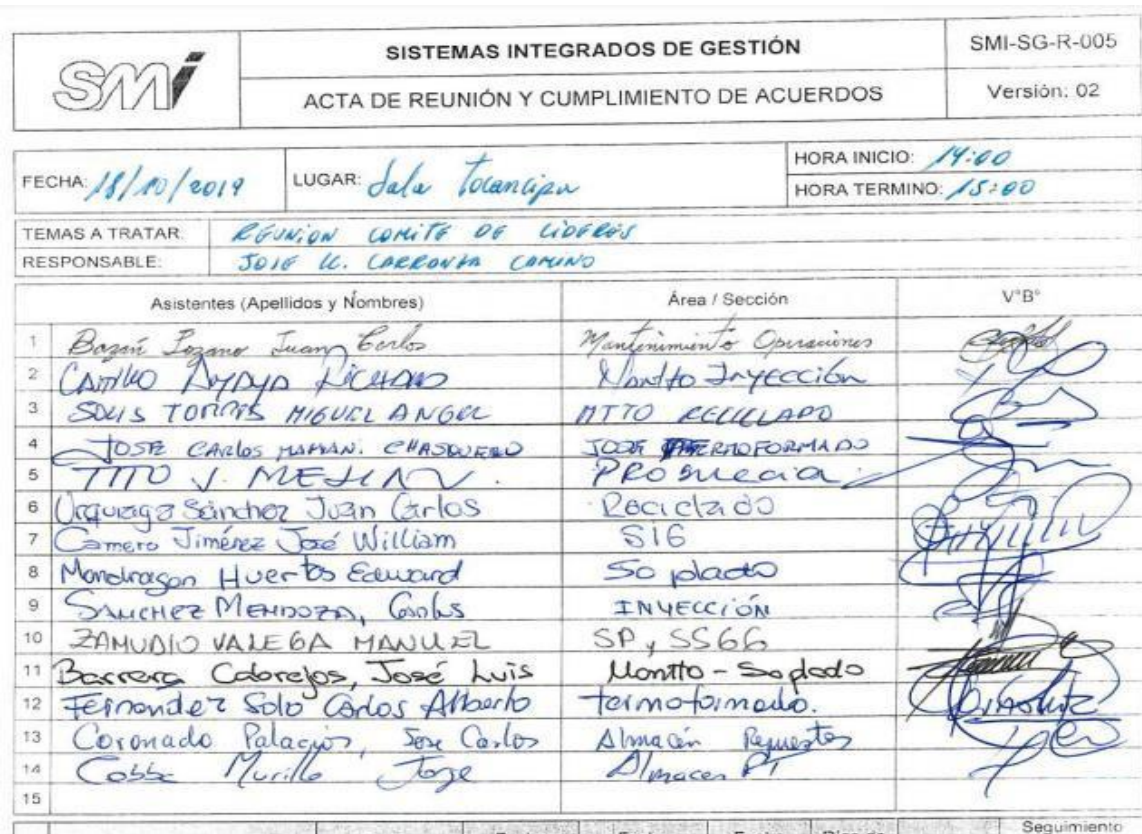 SMi
SISTEMAS INTEGRADOS DE GESTIÓN
SMI-SG-R-005
ACTA DE REUNIÓN Y CUMPLIMIENTO DE ACUERDOS
Versión: 02
FECHA: 18/10/2019
LUGAR: Sala Tocancipa
HORA INICIO: 14:00
HORA TERMINO: 15:00
TEMAS A TRATAR: REUNION COMITE DE LIDERES
RESPONSABLE: JOSE CAMINO
Asistentes (Apellidos y Nombres) Área / Sección V°B°
1 Bazán Lozano Juan Carlos Mantenimiento Operaciones
2 CARILLO Mantto Inyección
3 SOLIS TORRES MIGUEL ANGEL MTTO RECICLADO
4 JOSE CARLOS CHASQUERO TERMOFORMADO
5 TITO V. MEJIA
6 Urquiaga Sánchez Juan Carlos Reciclado
7 Camero Jiménez José William SIG
8 Mondragon Huertas Edward Soplado
9 SANCHEZ MENDOZA, Carlos INYECCIÓN
10 ZAMUDIO VALEGA MANUEL SP y SSGG
11 Barrera Cabrejos, José Luis Mantto - Soplado
12 Fernandez Solo Carlos Alberto termoformado.
13 Coronado Palacios, Jose Carlos Almacén Repuestos
14 Murillo Jorge Almacen PT
15
Seguimiento